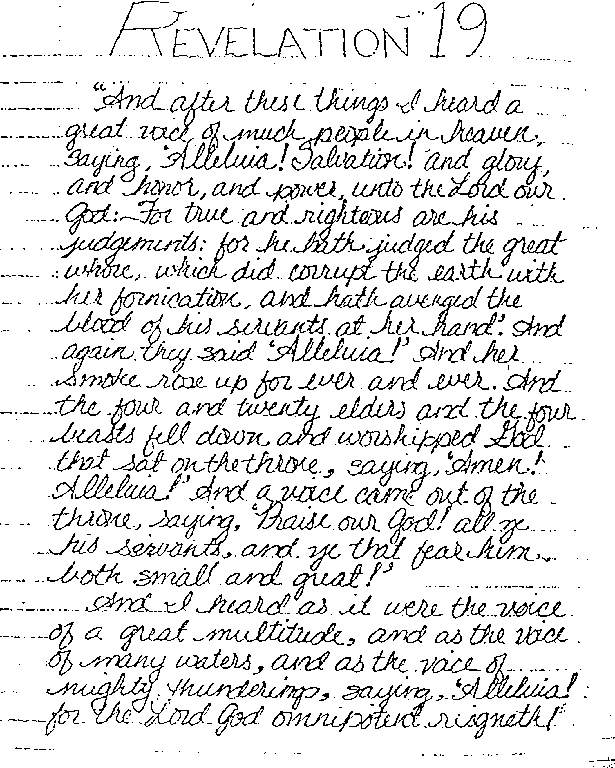 REVELATION 19
"And after these things I heard a
great voice of much people in heaven,
saying, 'Alleluia! Salvation! and glory,
and honor, and power, unto the Lord our
God: For true and righteous are his
judgements: for he hath judged the great
whore, which did corrupt the earth with
her fornication, and hath avenged the
blood of his servants at her hand'. And
again they said 'Alleluia!' And her
smoke rose up for ever and ever. And
the four and twenty elders and the four
beasts fell down and worshipped God
that sat on the throne, saying, 'Amen!
Alleluia!' And a voice came out of the
throne, saying, 'Praise our God! all ye
his servants, and ye that fear him,
both small and great!'
And I heard as it were the voice
of a great multitude, and as the voice
of many waters, and as the voice of
mighty thunderings, saying, 'Alleluia!
for the Lord God omnipotent reigneth!'